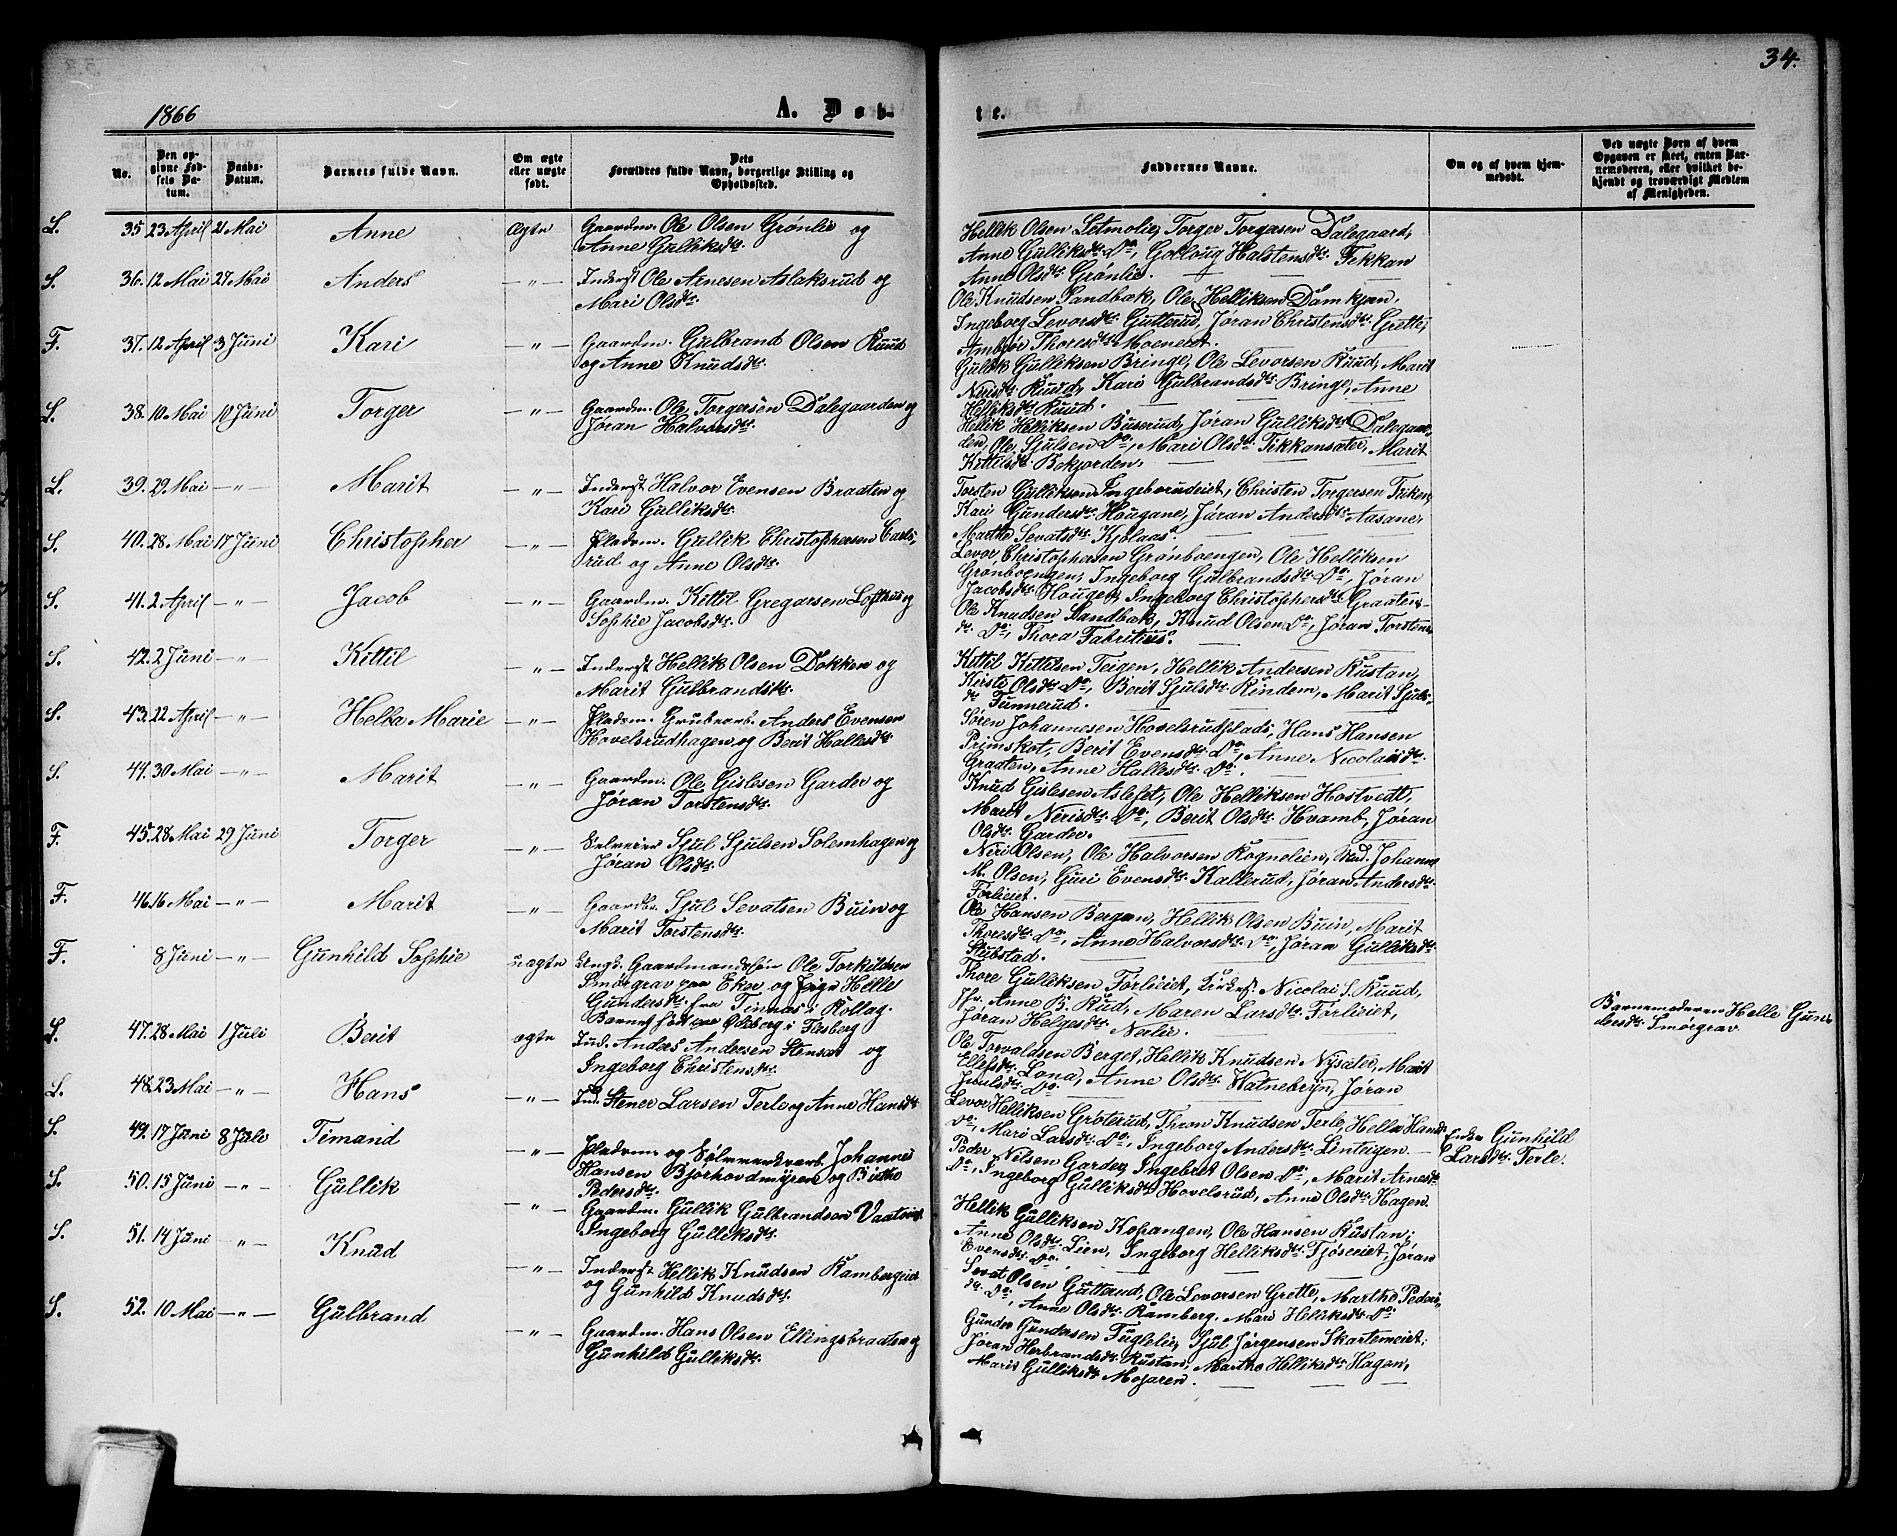 34.
1866
A. Døb-
te.
No.
Den op-
givne Fød-
sels Da-
tum.
Daabs-
Datum.
Barnets fulde Navn.
Om ægte
eller uægte
født.
Dets
Forældres fulde Navn, borgerlige Stilling og
Opholdssted.
Faddernes Navne.
Om og af hvem hjem-
medøbt.
Ved uægte Børn af hvem
Opgaven er skeet, enten Bar-
nemoderen, eller hvilket be-
kjendt og troværdigt Medlem
af Menigheden.
L. 35. 23 April 21 Mai Anne Ægte Gaardm. Ole Olsen Grønlie og
Anne Gulliksdtr.
Hellik Olsen Letmolie, Torger Torgersen Dalegaard,
Anne Gulliksdtr. Do, Golloug Halstensdtr. Fekkan
Anne Olsdtr. Grønlie.
S. 36. 12 Mai 27 Mai Anders — " — Inderst Ole Arnesen Aslaksrud og
Mari Olsdtr.
Ole Knudsen Sandbæk, Ole Helliksen Damkjern.
Ingeborg Levorsdtr. Gutterud, Jøran Christensdtr. Grette,
Ambjør Thoresdtr. Moeneiet.
F. 37. 12 April 3 Juni Kari — " — Gaardm. Gulbrand Olsen Ruud
og Anne Knudsdtr.
Gullik Gulliksen Bringe, Ole Levorsen Ruud, Marit
Nerisdtr. Ruud, Kari Gulbrandsdtr. Bringe, Anne
Helliksdtr. Ruud.
L. 38. 10 Mai 10 Juni Torger — " — Gaardm. Ole Torgersen Dalegaarden og
Jøran Halvorsdtr.
Hellik Helliksen Buserud, Jøran Gulliksdtr. Dalegaar-
den, Ole Sjulsen Do, Mari Olsdtr. Fikkansæter, Marit
Kittilsdtr. Bekjorden.
L. 39. 29 Mai — " — Marit — " — Inderst Halvor Evensen Braaten og
Kari Gulliksdtr.
Torsten Gulliksen Ingeborudeiet, Christen Torgersen Fikken,
Kari Gundersdtr. Hougane, Jøran Andersdtr. Aasane,
Marthe Sevatsdtr. Kjølaas.
S. 40. 28. Mai 17 Juni Christopher — " — Pladsm. Gullik Christophersen Carls-
rud og Anne Olsdtr.
Levor Christophersen Grønboengen, Ole Helliksen
Grønboengen, Ingeborg Gulbrandsdtr. Do, Jøran
Jacobsdtr. Hougen, Ingeborg Christophersdtr. Graaten.
S. 41. 2 April — " — Jacob — " — Gaardm. Kittil Gregarsen Lofthus og
Sophie Jacobsdtr.
Ole Knudsen Sandbæk, Knud Olsen Do, Jøran Torstens-
dtr. Do, Thora Fabritius.
S. 42. 2 Juni — " — Kittil — " — Inderst Hellik Olsen Dokken og
Marit Gulbrandsdtr.
Kittil Kittilsen Teigen, Hellik Andersen Rustan,
Kirsti Olsdtr. Do, Berit Sjulsdtr. Rindem, Marit Sjuls-
dtr. Funnerud.
S. 43. 22 April — " — Hella Marie — " — Pladsm. Grubearb. Anders Evensen
Hovelsrudhagen og Berit Hallesdtr.
Søren Johannesen Hovelsrudplads, Hans Hansen
Primskot, Berit Evensdtr. Do, Anne Nicolaisdtr.
Graaten, Anne Hallesdtr. Do.
S. 44. 30 Mai — " — Marit — " — Gaardm. Ole Gislesen Garder og
Jøran Torstensdtr.
Knud Gislesen Aslefet, Ole Helliksen Hostvedt,
Marit Nerisdtr. Do, Berit Olsdtr. Hvamb, Jøran
Olsdtr. Garder.
F. 45. 28 Mai 29 Juni Torger — " — Selveier Sjul Sjulsen Solemhagen og
Jøran Olsdtr.
Neri Olsen, Ole Halvorsen Rognelien, Stud. Johannes
M. Olsen, Guri Evensdtr. Kallerud, Jøran Andersdtr.
Førlieiet.
F. 46. 16 Mai — " — Marit — " — Gaardbr. Sjul Sevatsen Buin og
Marit Torstensdtr.
Ole Hansen Bergan, Hellik Olsen Buin, Marit
Thoresdtr. Do, Anne Halvorsdtr. Do, Jøran Gulliksdtr.
Stubstad.
F. 8 Juni — " — Gunhild Sophie uægte Ungk. Gaardmandssøn Ole Torkildsen
Smørgrav paa Eker og Pige Helle
Gundersdtr. fra Tinnæs i Rollag.
Barnet født paa Ødeborg i Flesberg
Thore Gulliksen Førlieiet, Kirkes. Nicolai S. Ruud,
Jfr. Anne B. Rud, Maren Larsdtr. Førlieiet,
Jøran Helgesdtr. Nerlie.
Barnemoderen Helle Gun-
dersdtr. Smörgrav.
L. 47. 28 Mai 1 Juli Berit ægte Ind. Anders Andersen Stensæt og
Ingeborg Christensdtr.
Ole Torvaldsen Berget, Hellik Knudsen Nysæter, Marit
Ellefsdtr. Lona, Anne Olsdtr. Watnebryn, Jøran
Juulsdtr. Do.
L. 48. 23 Mai — " — Hans — " — Ind. Stener Larsen Terle og Anne Hansdtr.
Levor Helliksen Grøterud, Thron Knudsen Terle, Hella Hansd.
Do, Mari Larsdtr. Do, Ingeborg Andersdtr. Linteigen.
Enke Gunhild
Larsdtr. Terle.
S. 49. 17 Juni 8 Jule Timand — " — Pladsm. og Sølvverksarb. Johannes
Hansen Bjørhovdmyren og Birthe
Pedersdtr.
Peder Nilsen Garder, Ingebret Olsen Do, Marit Arnesdtr.
Do, Ingeborg Gulliksdtr. Hovelsrud, Anne Olsdtr. Hagen.
S. 50. 15 Juni — " — Gullik — " — Gaardm. Gullik Gulbrandsen Vaatvig
Ingeborg Gulliksdtr.
Hellik Gulliksen Kopangen, Ole Hansen Rustan,
Anne Olsdtr. Lien, Ingeborg Helliksdtr. Fjøseiet, Jøran
Evensdtr. Do.
S. 51. 14 Juni — " — Knud — " — Inderst Hellik Knudsen Rambergeie
og Gunhild Knudsdtr.
Sevat Olsen Gutterud, Ole Levorsen Grette, Marthe Peders-
dtr. Do, Anne Olsdtr. Ramberg. Mari Helliksdtr. Do
S. 52. 10 Mai — " — Gulbrand — " — Gaardm. Hans Olsen Ellingsbraaten og
Gunhild Gulliksdtr.
Gunder Gundersen Fuglelie, Sjul Jørgensen Skartemeiet,
Jøran Herbrandsdtr. Rustan, Marthe Helliksdtr. Hagen,
Marit Gulliksdtr. Moparen.